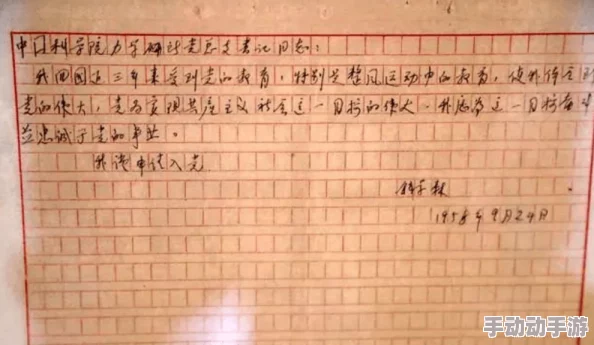 中国科学院力学研究所党总支书记同志：
我回国近三年来受到党的教育，特别是整风运动中的教育，使我体会到
党的伟大，党为实现共产主义社会这一目标的伟大。我愿为这一目标奋斗
并忠诚于党的事业。
我谨申请入党
钱学森
1958年9月24日
手动动手游